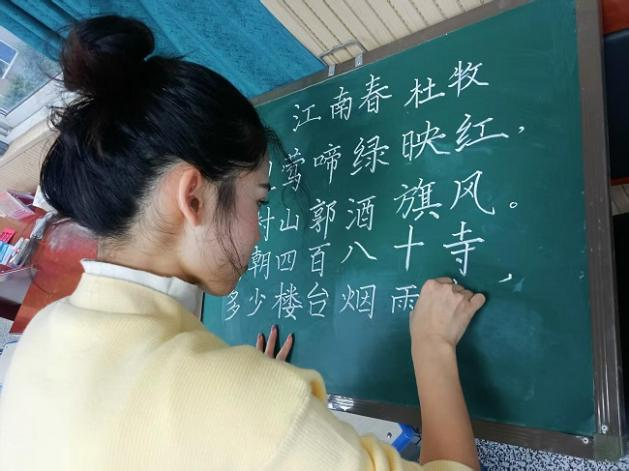 江南春 杜牧
莺啼绿映红，
村山郭酒旗风。
朝四百八十寺，
多少楼台烟雨